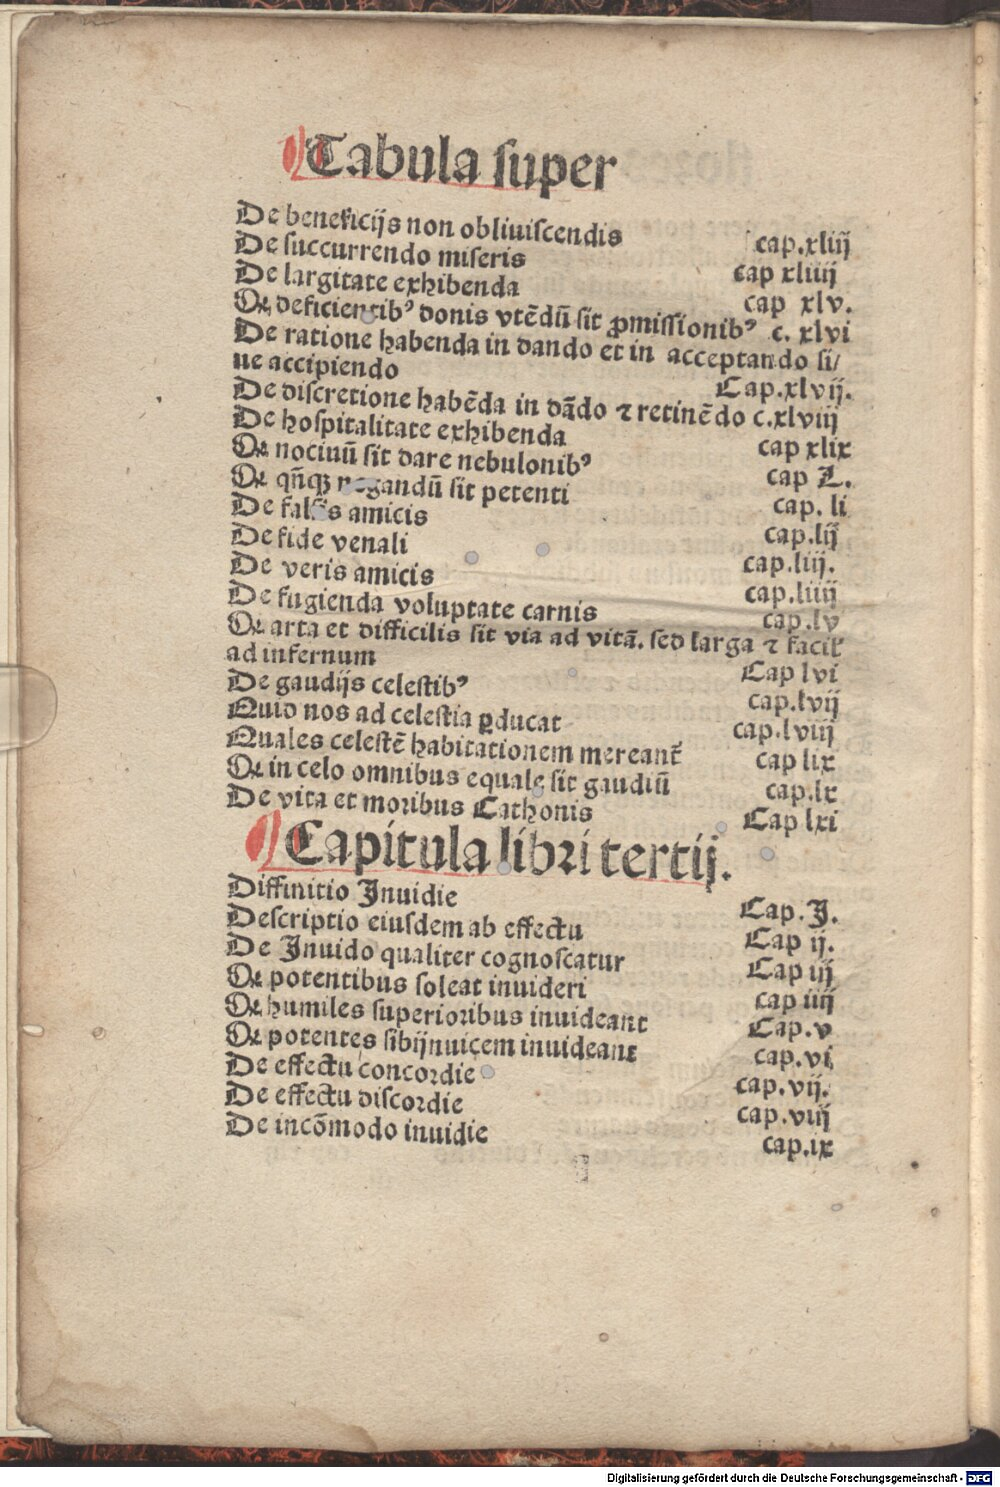 Tabula super
De beneficijs non obliuiscendis cap.xliij
De succurrendo miseris cap xliiij
De largitate exhibenda cap xlv.
Qꝛ deficientibꝰ donis vtēdū sit ꝓmissionibꝰ c. xlvi
De ratione habenda in dando et in acceptando si/
ue accipiendo Cap.xlvij.
De discretione habēda in dādo ⁊ retinēdo c.xlviij
De hospitalitate exhibenda cap xlix
Qꝛ nociuū sit dare nebulonibꝰ cap L.
Qꝛ qn̄qꝫ negandū sit petenti cap. li
De falsis amicis cap.lij
De fide venali cap.liij.
De veris amicis cap.liiij
De fugienda voluptate carnis cap.lv
Qꝛ arta et difficilis sit via ad vitā. sed larga ⁊ facil'
ad infernum Cap lvi
De gaudijs celestibꝰ cap.lvij
Quid nos ad celestia ꝑducat cap.lviij
Quales celestē habitationem mereant᷑ cap lix
Qꝛ in celo omnibus equale sit gaudiū cap.lx
De vita et moribus Cathonis Cap lxi
Capitula libri tertij.
Diffinitio Inuidie Cap.I.
Descriptio eiusdem ab effectu Cap ij.
De Inuido qualiter cognoscatur Cap iij
Qꝛ potentibus soleat inuideri cap iiij
Qꝛ humiles superioribus inuideant Cap.v
Qꝛ potentes sibijnuicem inuideant cap.vi
De effectu concordie cap.vij.
De effectu discordie cap.viij
De incōmodo inuidie cap.ix
Digitalisierung gefördert durch die Deutsche Forschungsgemeinschaft - DFG